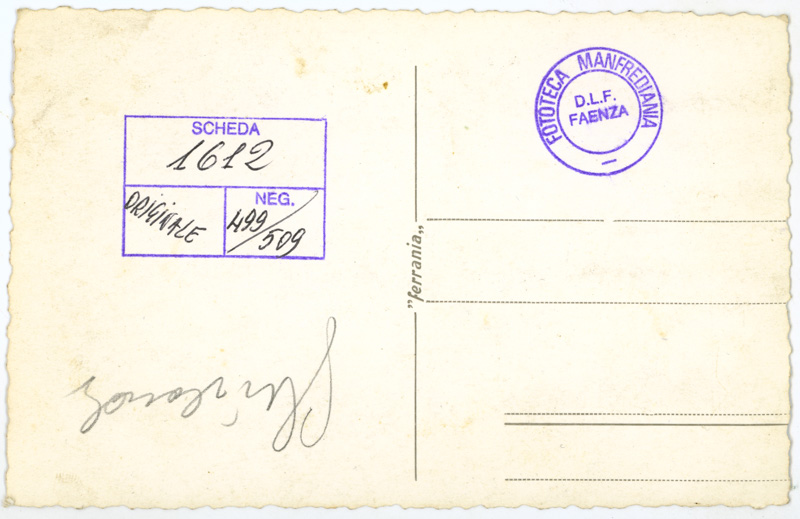 SCHEDA
1612
ORIGINALE
NEG.
499/509
FOTOTECA MANFREDIANIA
D.L.F.
FAENZA
"ferrania"